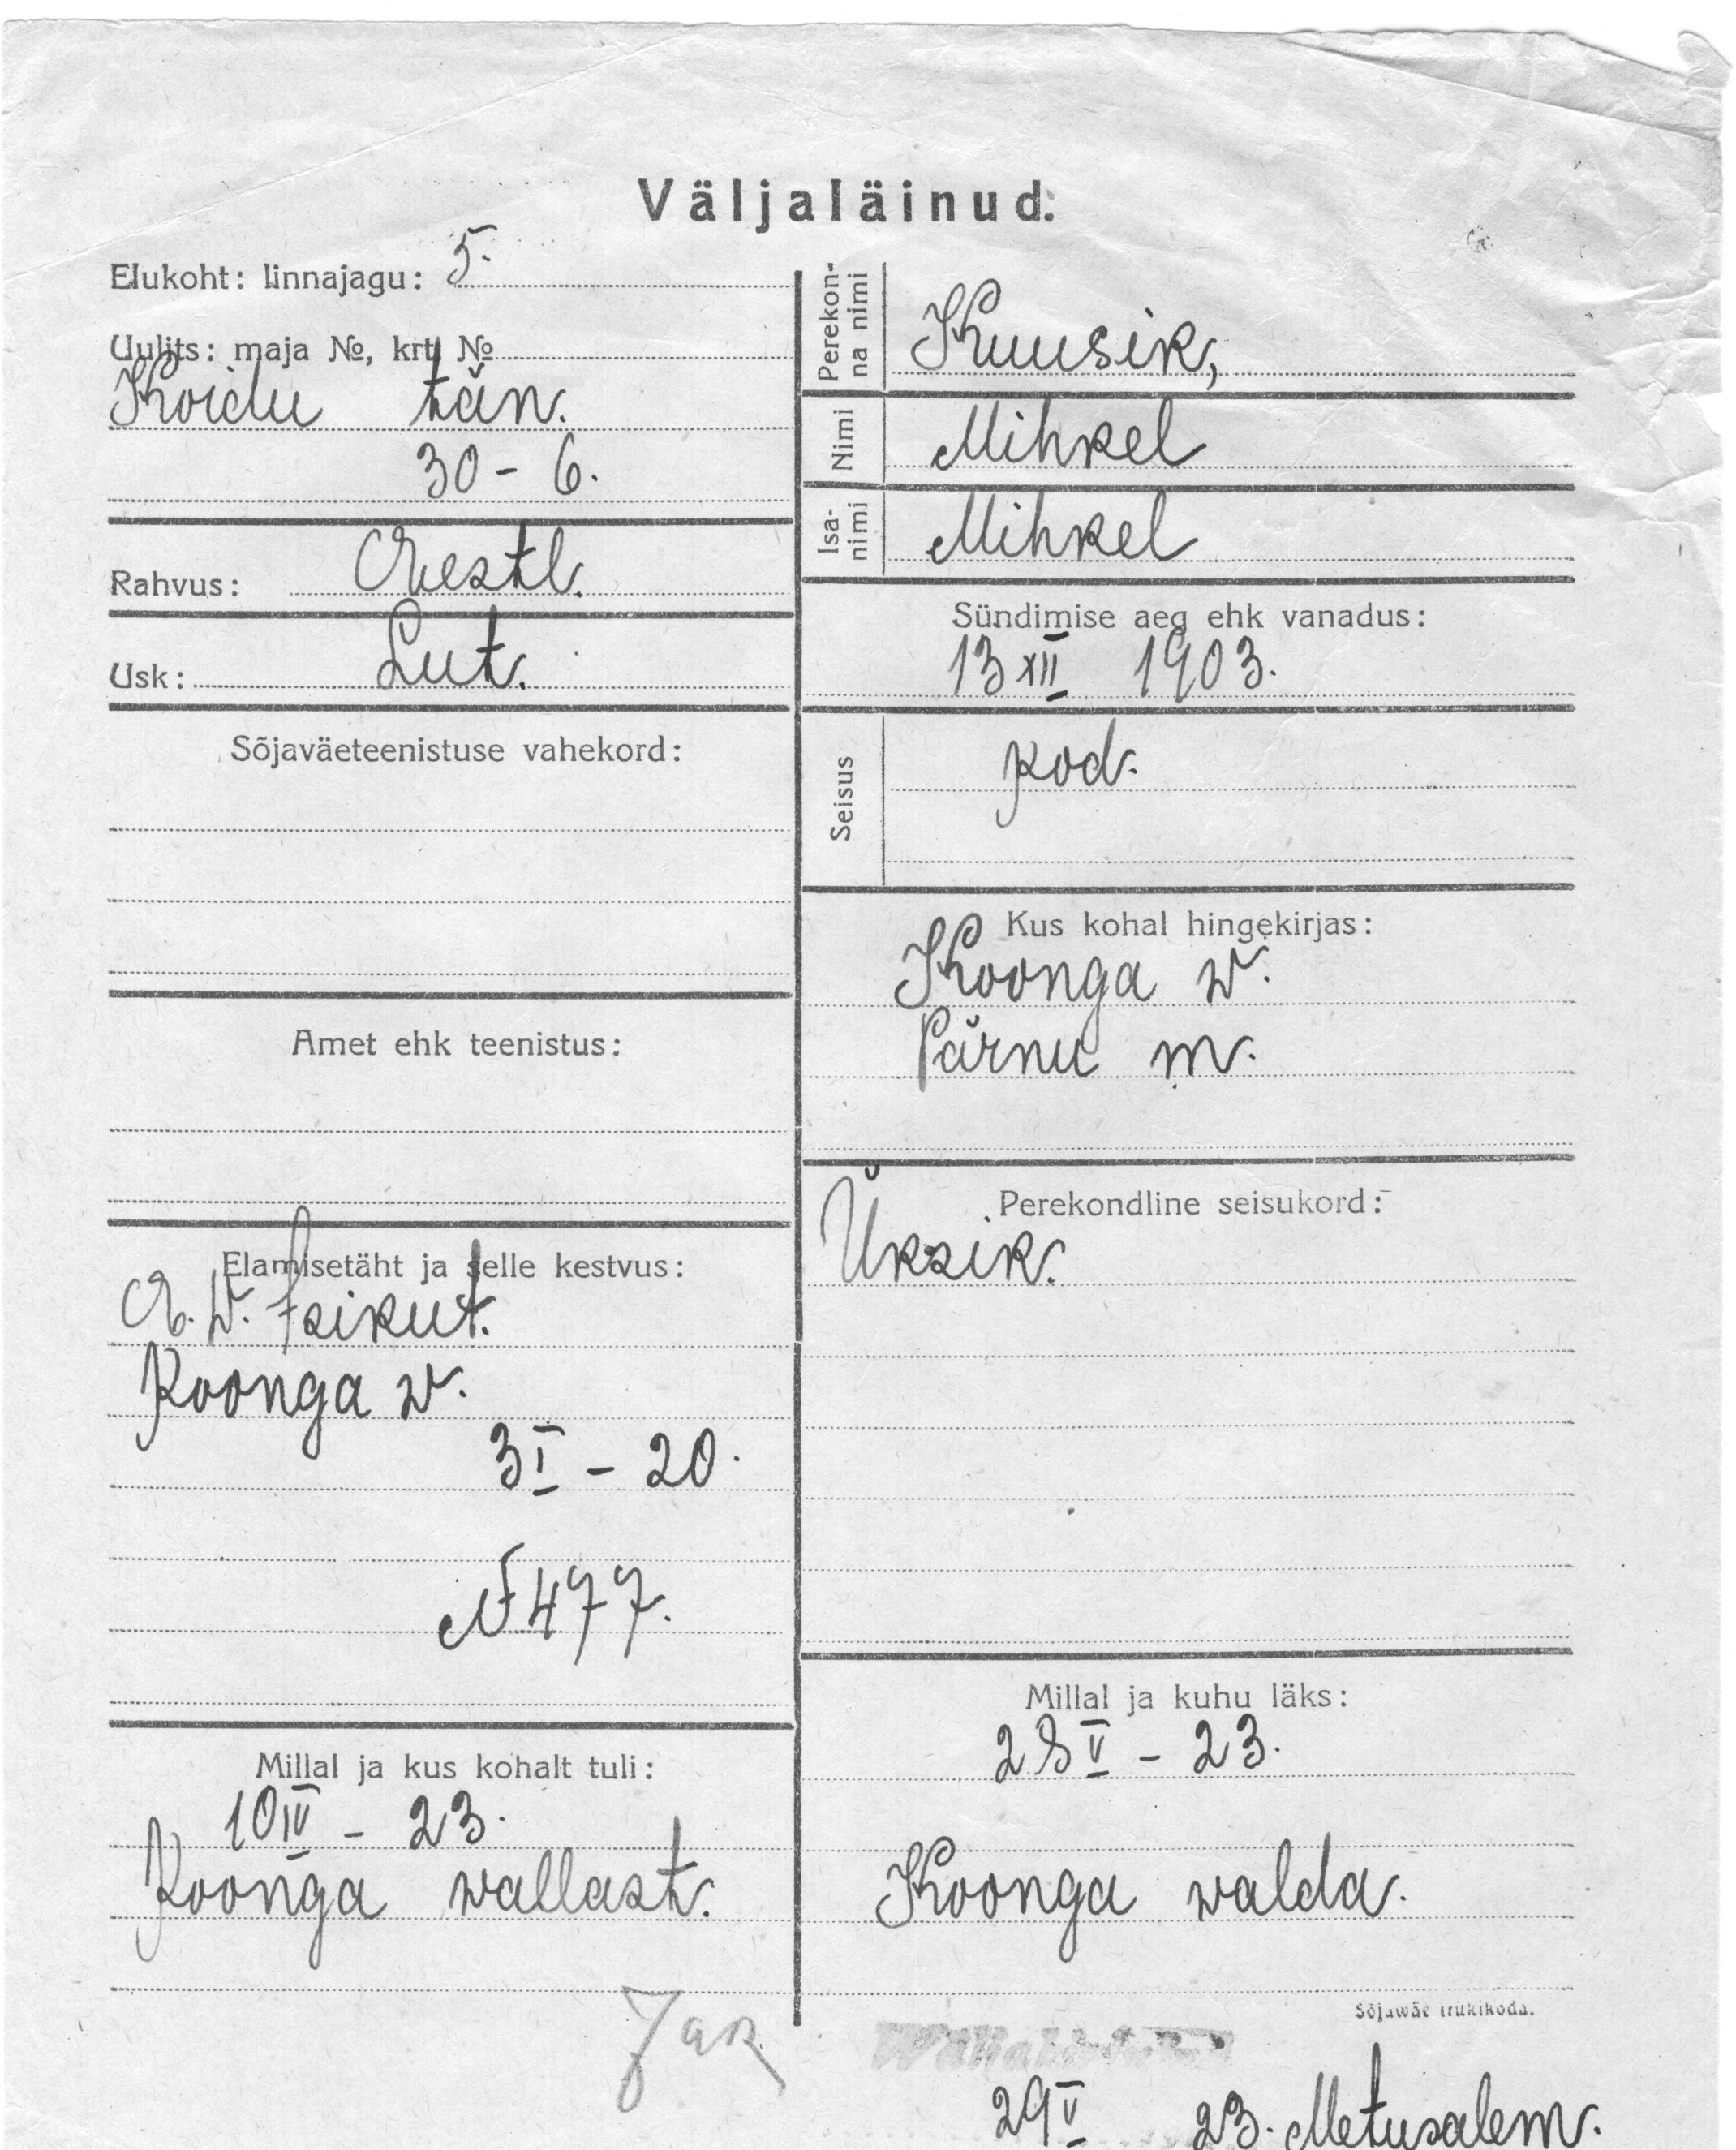 Väljaläinud:
Elukoht: linnajagu: 5.
Uulits: maja №, krt. №
Koidu tän.
30 - 6.
Rahvus: Eestl.
Usk: Lut.
Sõjaväeteenistuse vahekord:
Amet ehk teenistus:
Elamisetäht ja selle kestvus:
E. W. Isikut.
Koonga w.
3 I - 20.
N 477.
Millal ja kus kohalt tuli:
10 IV - 23.
Koonga wallast.
Perekon-
na nimi
Kuusik,
Nimi
Mihkel
Isa-
nimi
Mihkel
Sündimise aeg ehk vanadus:
13 XII 1903.
Seisus
kod.
Kus kohal hingekirjas:
Koonga w.
Pärnu m.
Perekondline seisukord:
Üksik.
Millal ja kuhu läks:
28 V - 23.
Koonga walda.
Sõjawäe trükikoda.
29 V 23. Metusalem.